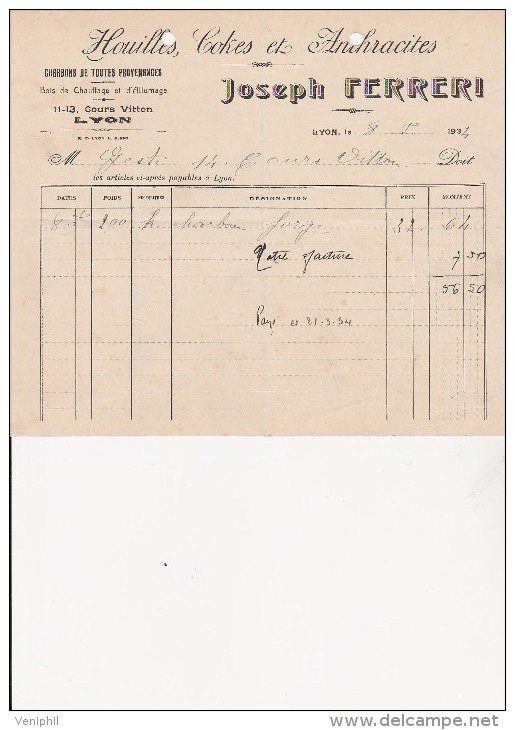 Houilles, Cokes et Anthracites
CHARBONS DE TOUTES PROVENANCES
Bois de Chauffage et d'Allumage
11-13, Cours Vitton
LYON
R. C. LYON A.
Joseph FERRERI
LYON, le 8 5 1934
M 14 Cours Vitton Doit
les articles ci-après payables à Lyon.
DATES POIDS DÉSIGNATION PRIX MONTANT
8 200 k charbon forge 32 64
Votre facture 7 50
56 50
Payé 21.3.34
Veniphil
www.delcampe.net